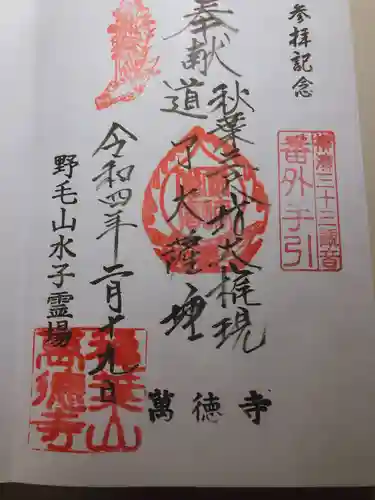 参拝記念
奉献
秋葉三尺坊大権現
道了大薩埵
令和四年二月十九日
野毛山水子霊場
萬徳寺
横濱三十三観音
番外手引
秋葉山
萬徳寺